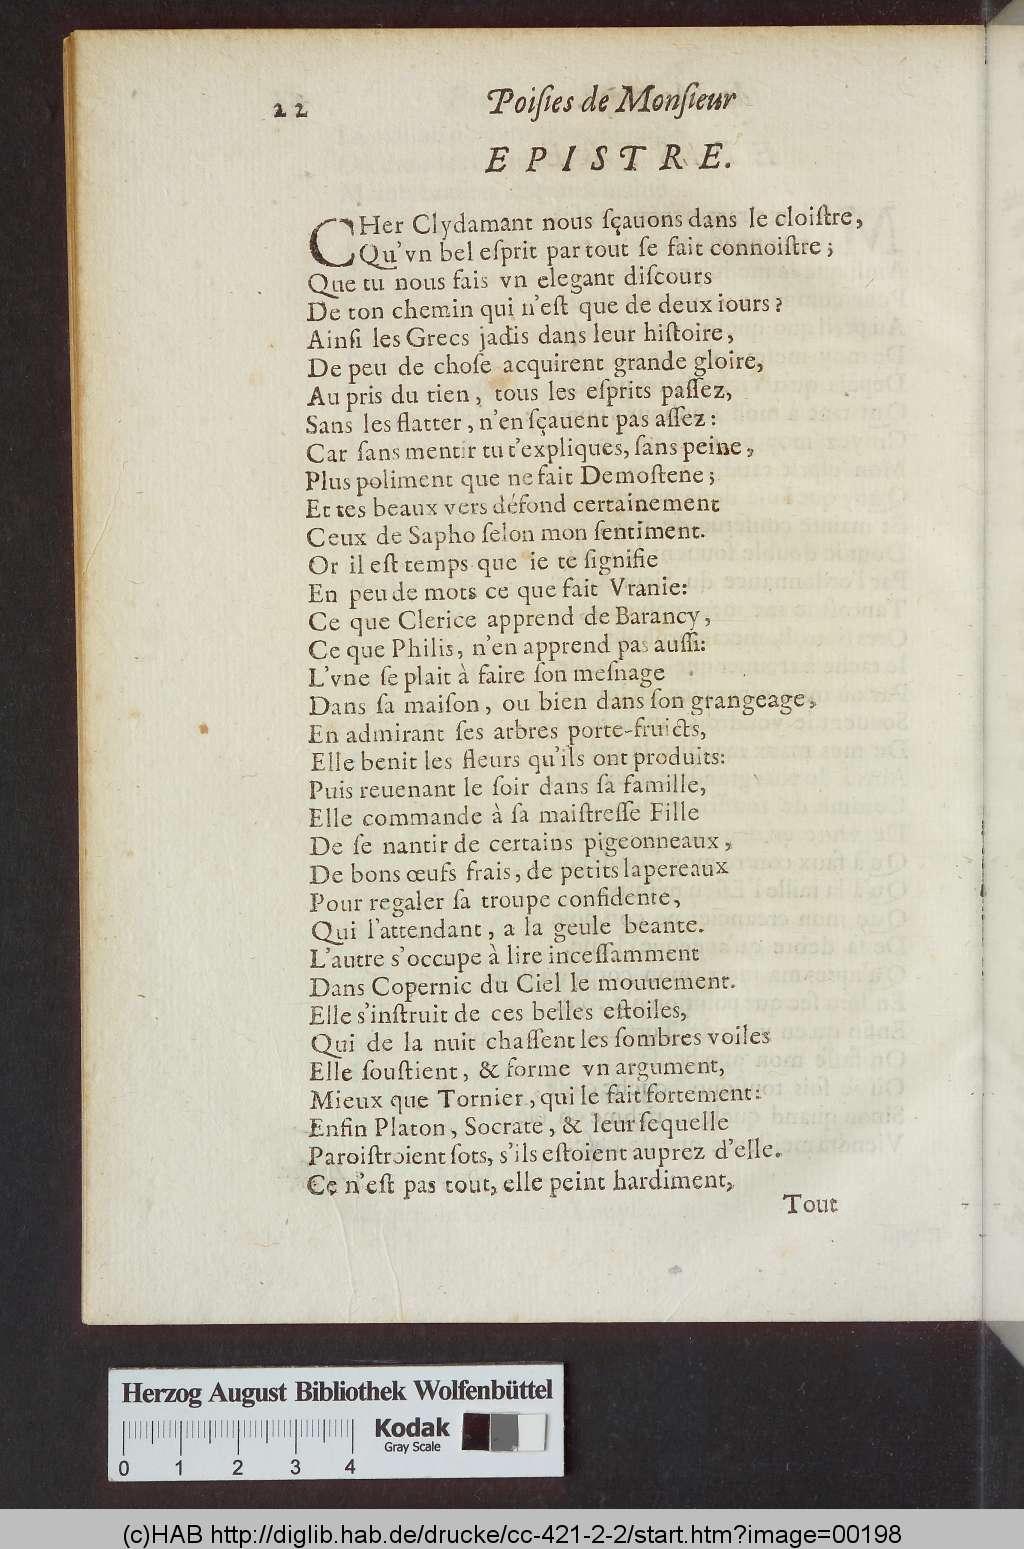 22 Poiſies de Monſieur
EPISTRE.
CHer Clydamant nous ſçauons dans le cloiſtre,
Qu'vn bel eſprit par tout ſe fait connoiſtre;
Que tu nous fais vn elegant diſcours
De ton chemin qui n'eſt que de deux iours?
Ainſi les Grecs jadis dans leur hiſtoire,
De peu de choſe acquirent grande gloire,
Au pris du tien, tous les eſprits paſſez,
Sans les flatter, n'en ſçauent pas aſſez:
Car ſans mentir tu t'expliques, ſans peine,
Plus poliment que ne fait Demoſtene;
Et tes beaux vers défond certainement
Ceux de Sapho ſelon mon ſentiment.
Or il eſt temps que ie te ſignifie
En peu de mots ce que fait Vranie:
Ce que Clerice apprend de Barancy,
Ce que Philis, n'en apprend pas auſſi:
L'vne ſe plait à faire ſon meſnage
Dans ſa maiſon, ou bien dans ſon grangeage,
En admirant ſes arbres porte-fruicts,
Elle benit les fleurs qu'ils ont produits:
Puis reuenant le ſoir dans ſa famille,
Elle commande à ſa maiſtreſſe Fille
De ſe nantir de certains pigeonneaux,
De bons œufs frais, de petits lapereaux
Pour regaler ſa troupe confidente,
Qui l'attendant, a la geule beante.
L'autre s'occupe à lire inceſſamment
Dans Copernic du Ciel le mouuement.
Elle s'inſtruit de ces belles eſtoiles,
Qui de la nuit chaſſent les ſombres voiles
Elle ſouſtient, & forme vn argument,
Mieux que Tornier, qui le fait fortement:
Enfin Platon, Socrate, & leur ſequelle
Paroiſtroient ſots, s'ils eſtoient auprez d'elle.
Ce n'eſt pas tout, elle peint hardiment,
Tout
Herzog August Bibliothek Wolfenbüttel
Kodak
Gray Scale
0 1 2 3 4
(c)HAB http://diglib.hab.de/drucke/cc-421-2-2/start.htm?image=00198